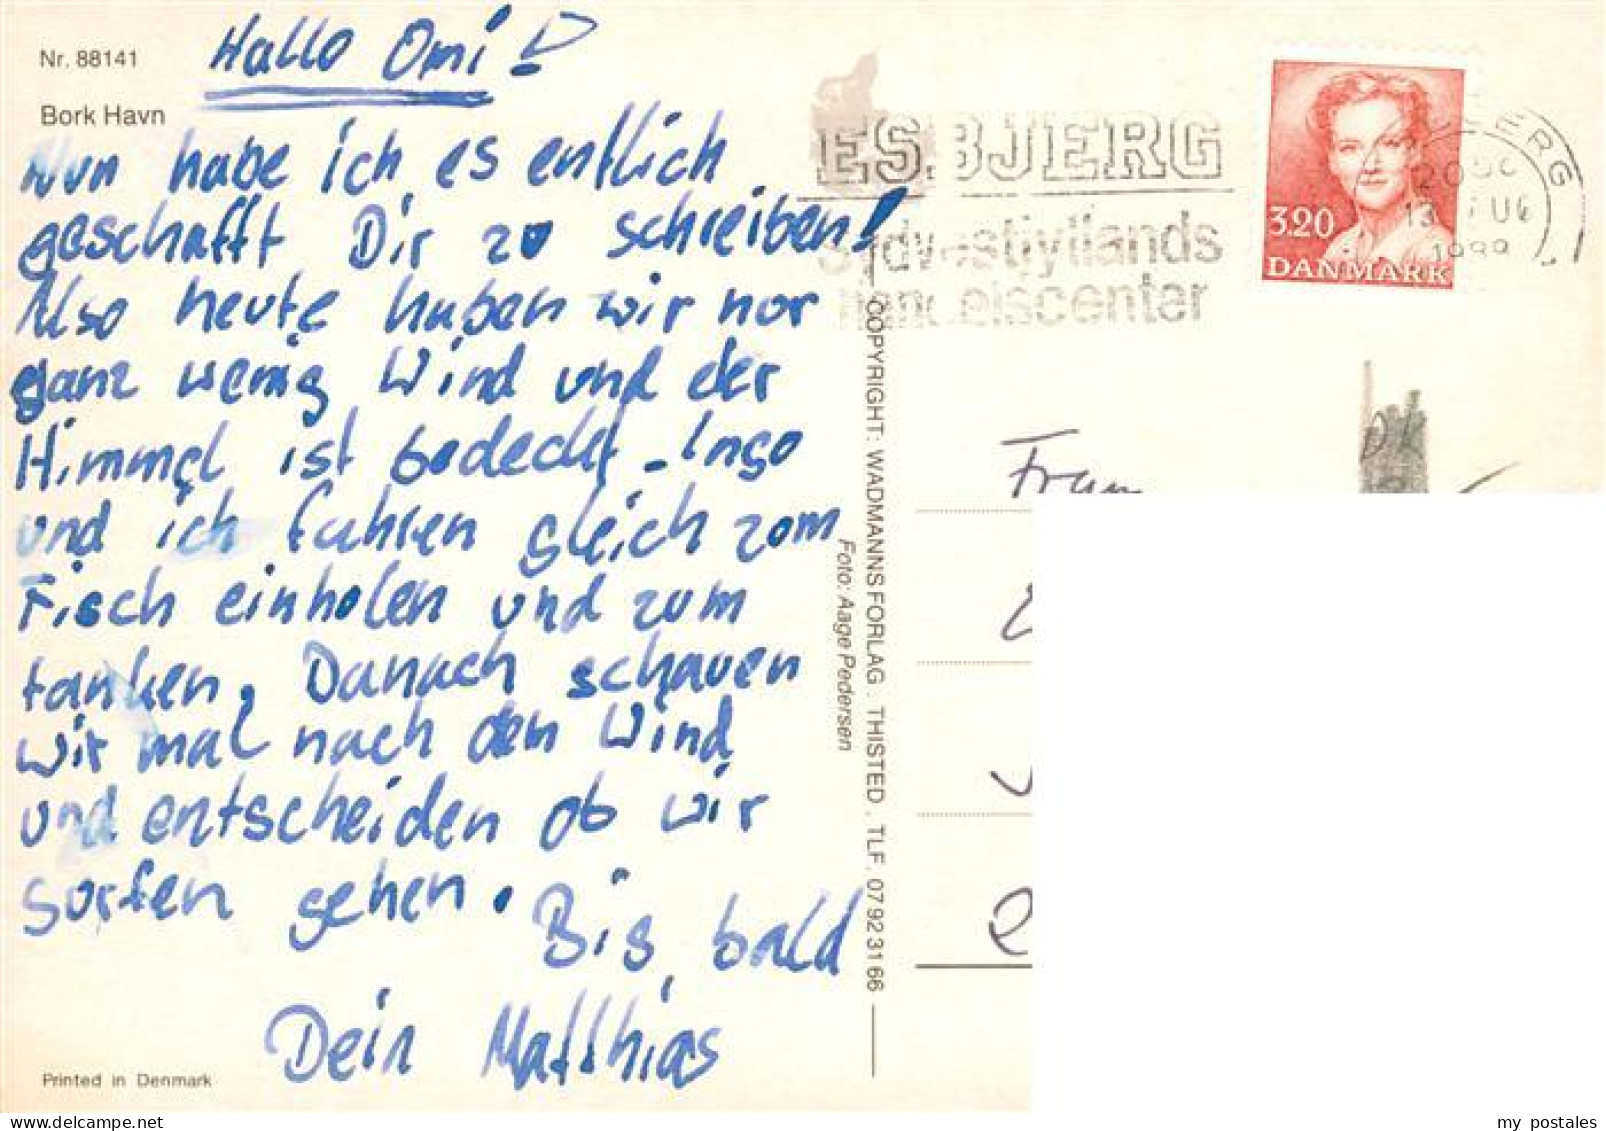 Nr. 88141
Bork Havn
Hallo Omi!
Nun habe ich es entlich
geschafft Dir zu schreiben!
Also heute haben wir nur
ganz wenig Wind und der
Himmel ist bedeckt. Ingo
und ich fahren gleich zum
Fisch einholen und zum
tanken. Danach schauen
wir mal nach den Wind
und entscheiden ob wir
surfen gehen.
Bis bald
Dein Matthias
Printed in Denmark
COPYRIGHT: WADMANNS FORLAG . THISTED . TLF. 07 92 31 66
Foto: Aage Pedersen
ESBJERG
Sydvestjyllands
handelscenter
3.20
DANMARK
Frau
my postales